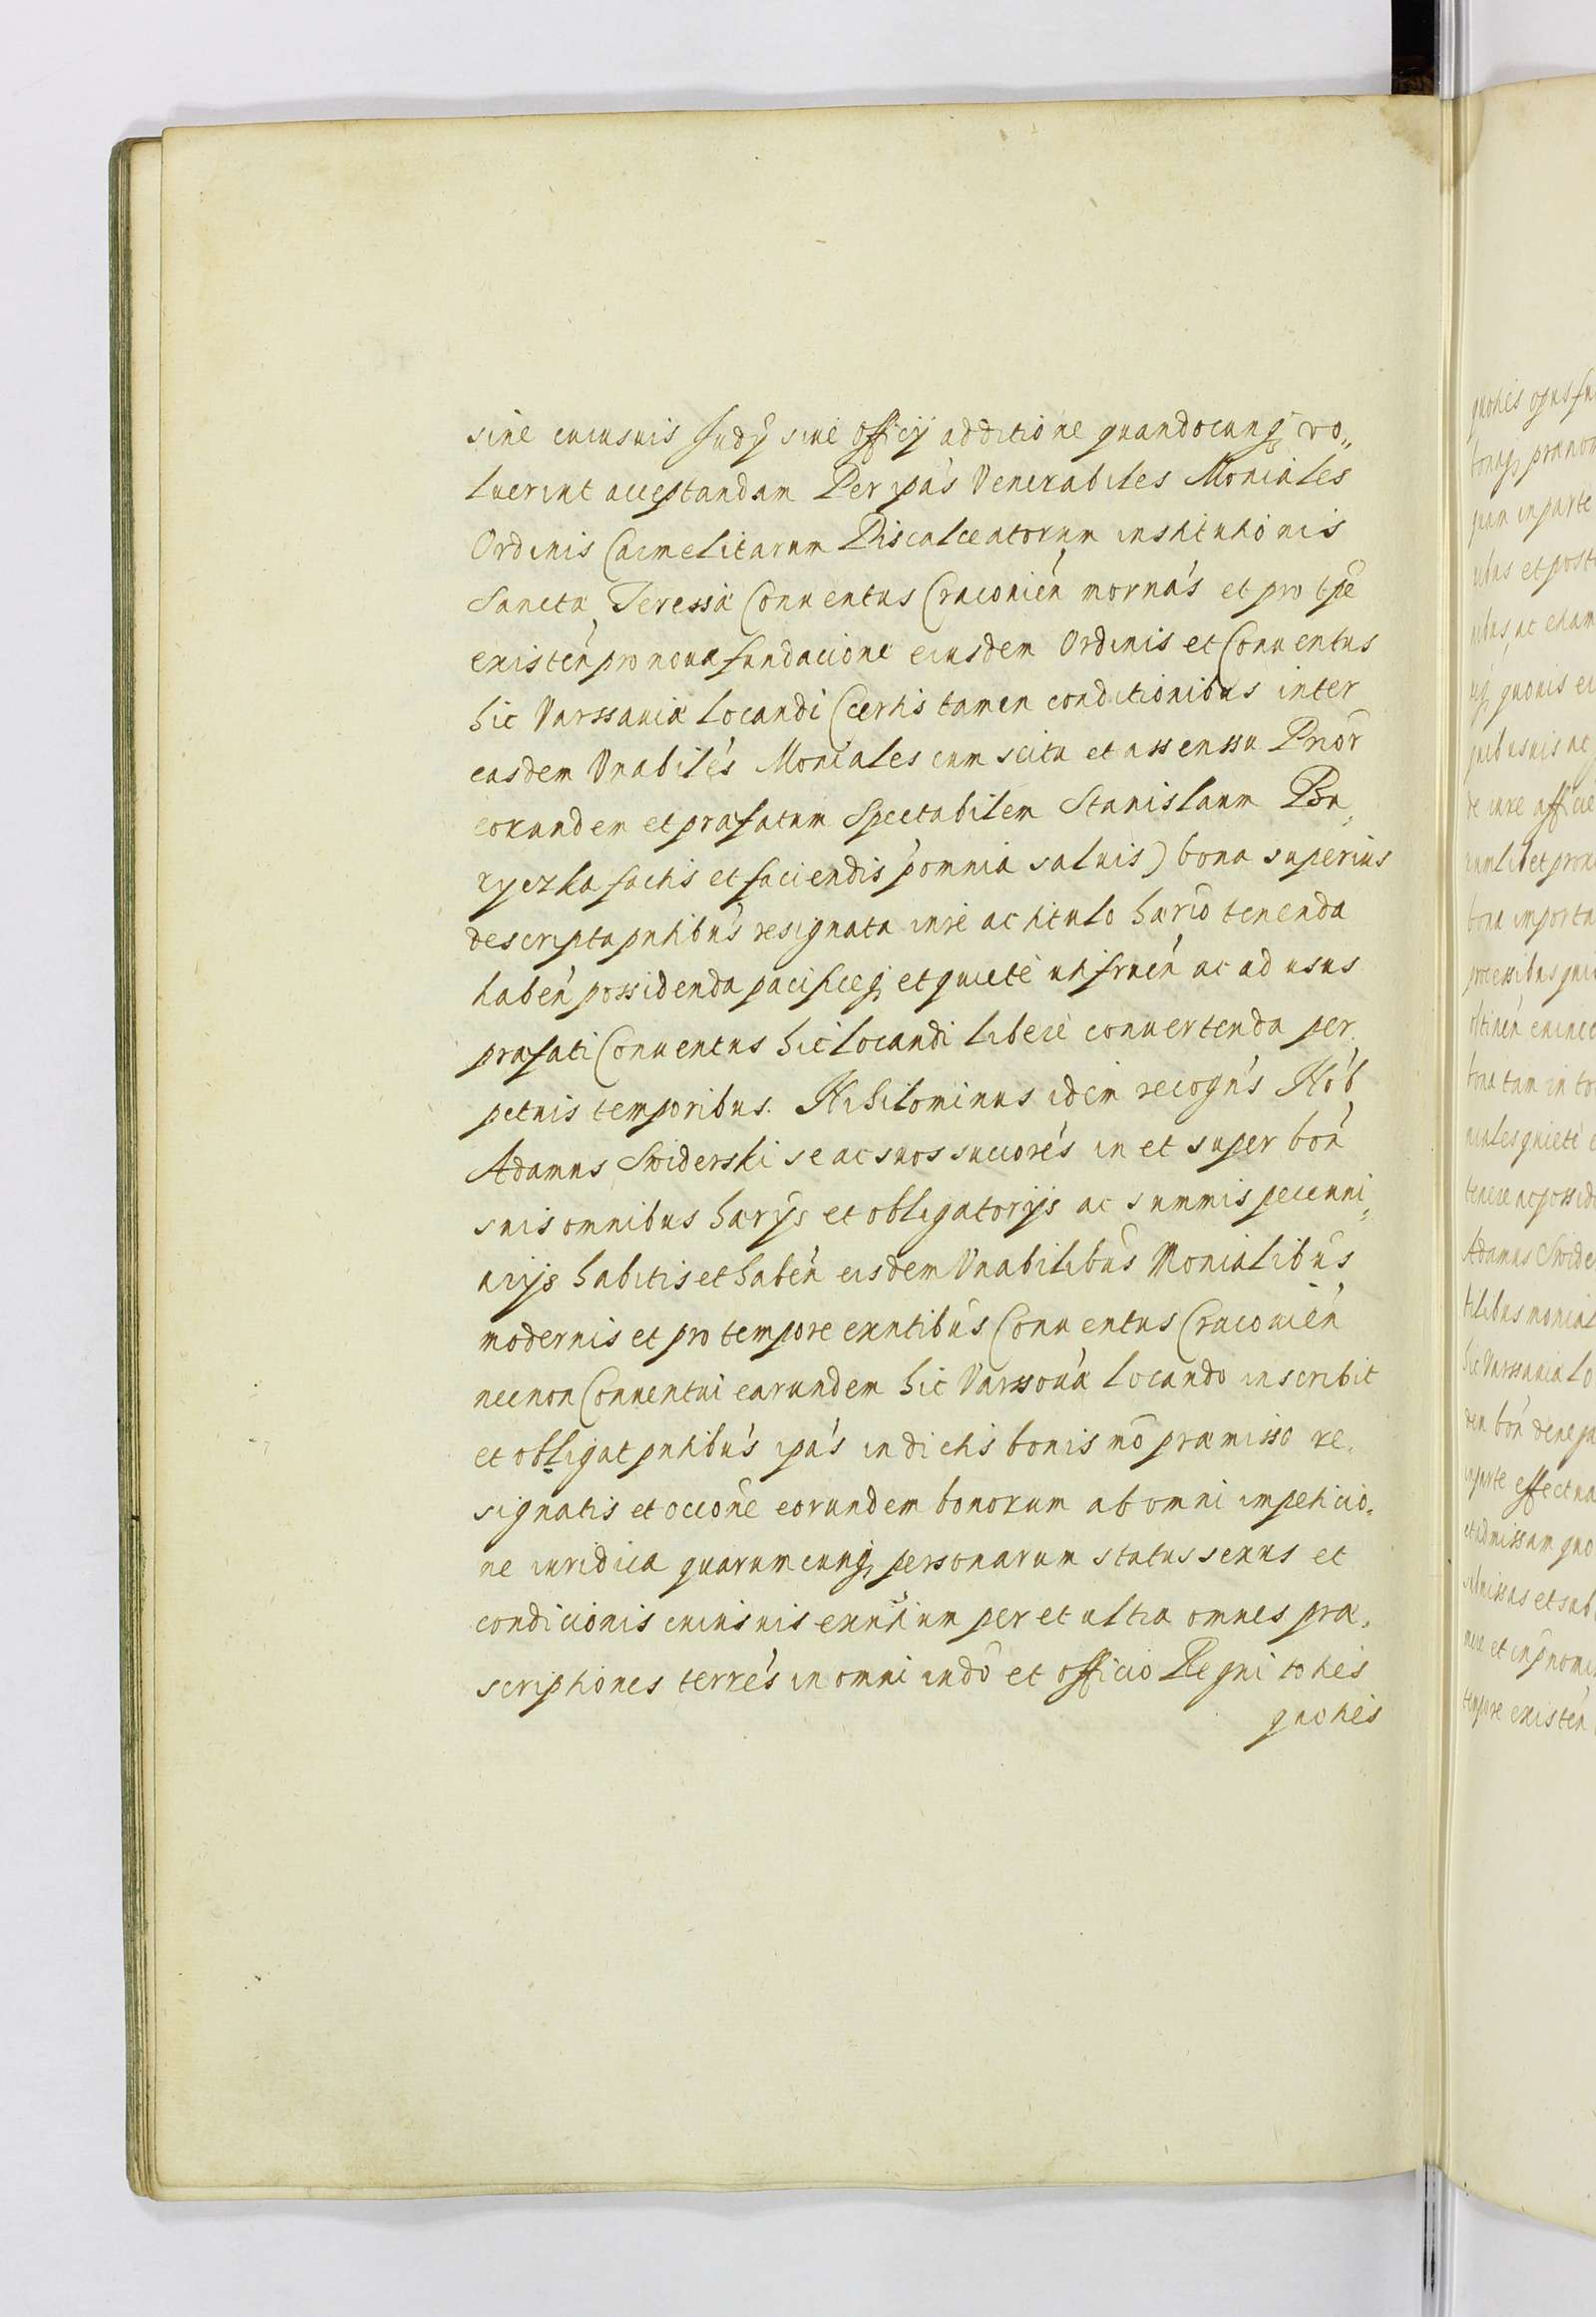 sine cuiusuis Judỹ siue officij additione quandocunq, vo„
luerint acceptandam Per ipas Venerabiles Moniales
Ordinis Carmelitarum Discalceatorum institutionis
Sanctæ Teressiæ Conuentus Cracouień mornas et pro tpe
existeń pro noua fundacione eiusdem Ordinis et Conuentus
hic Varssauiæ locandi (certis tamen conditionibus inter
easdem Vnabiles Moniales cum scitu et assenssu Prior
eorundem et præfatum Spectabilem Stanislaum Ba„
ryczka factis et faciendis p omnia saluis) bona superius
descripta pntibus resignata iure ac titulo hærio tenenda
habeń possidenda pacificeq, et quietè utifrueń ac ad usus
præfati Conuentus hic locandi liberè conuertenda per„
petuis temporibus. Nihilominus idem recogńs Nob
Adamus Swiderski se ac suos succores in et super boń
suis omnibus hærijs et obligatorijs ac summis pecuni„
arijs habitis et habeń eisdem Vnabilibus Monialibus
modernis et pro tempore exntibus Conuentus Cracouień
necnon Conuentui earundem hic Varssouiæ locando inscribit
et obligat pntibus ipas in dictis bonis mo præmisso re„
signatis et occone eorundem bonorum ab omni impeticio„
ne iuridica quarumcunq, personarum status sexus et
condicionis cuiusuis exntium per et ultra omnes præ„
scriptiones terres in omni iudo et officio Regni toties
quoties